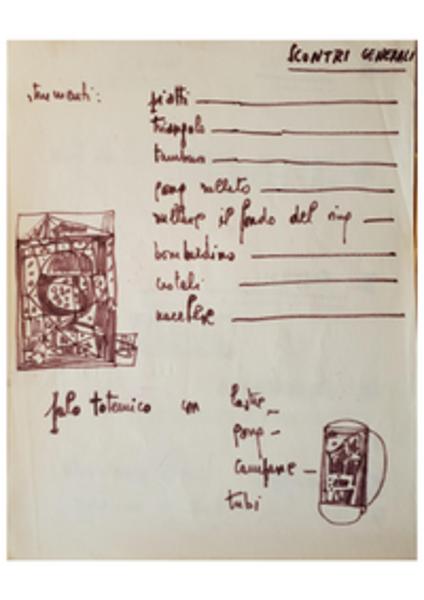 SCONTRI GENERALI
strumenti:
piatti
triangolo
tamburo
gong rullato
rullare il fondo del ring
bombardino
crotali
nacchere
palo totemico con lastre
gong
campane
tubi